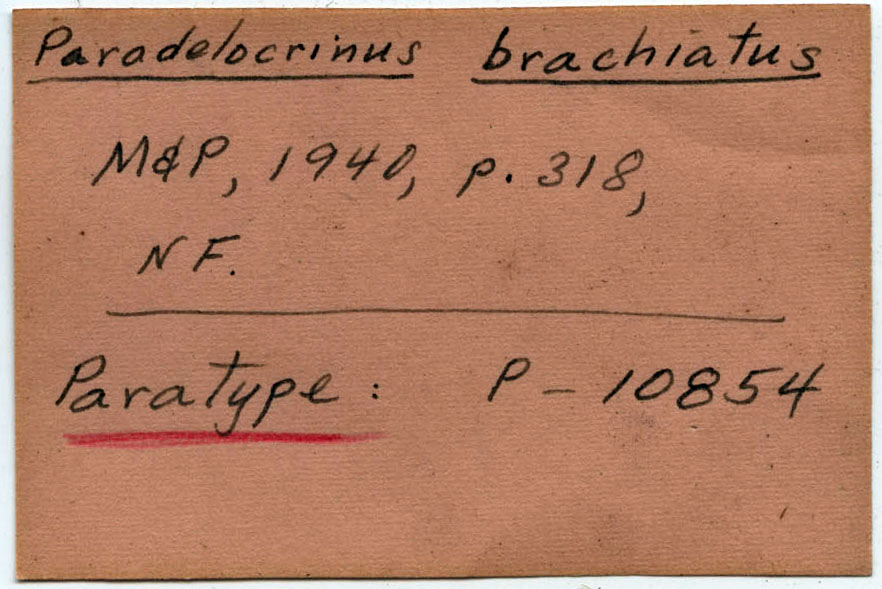 Paradelocrinus brachiatus
M&P, 1940, p. 318,
NF.
Paratype: P-10854